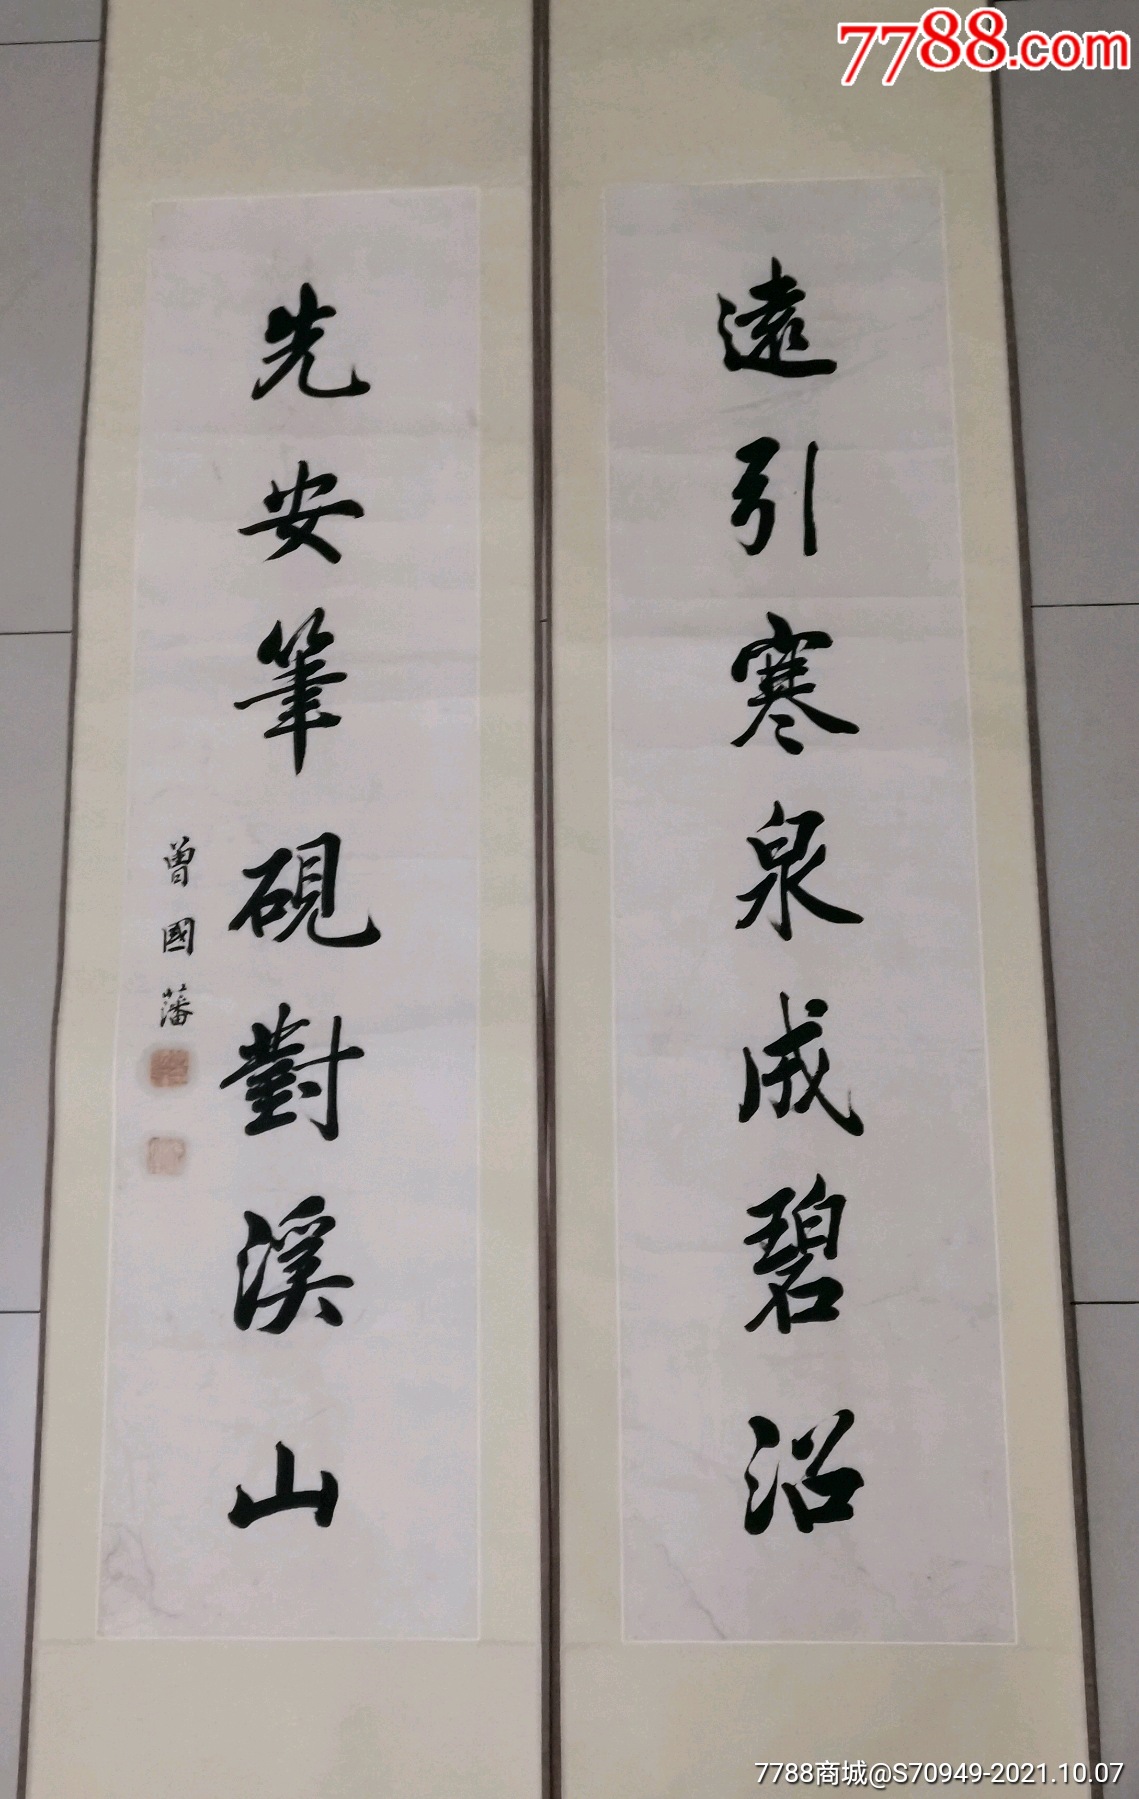 7788.com
遠引寒泉成碧沼
先安筆硯對溪山
曾國藩
7788商城@S70949-2021.10.07